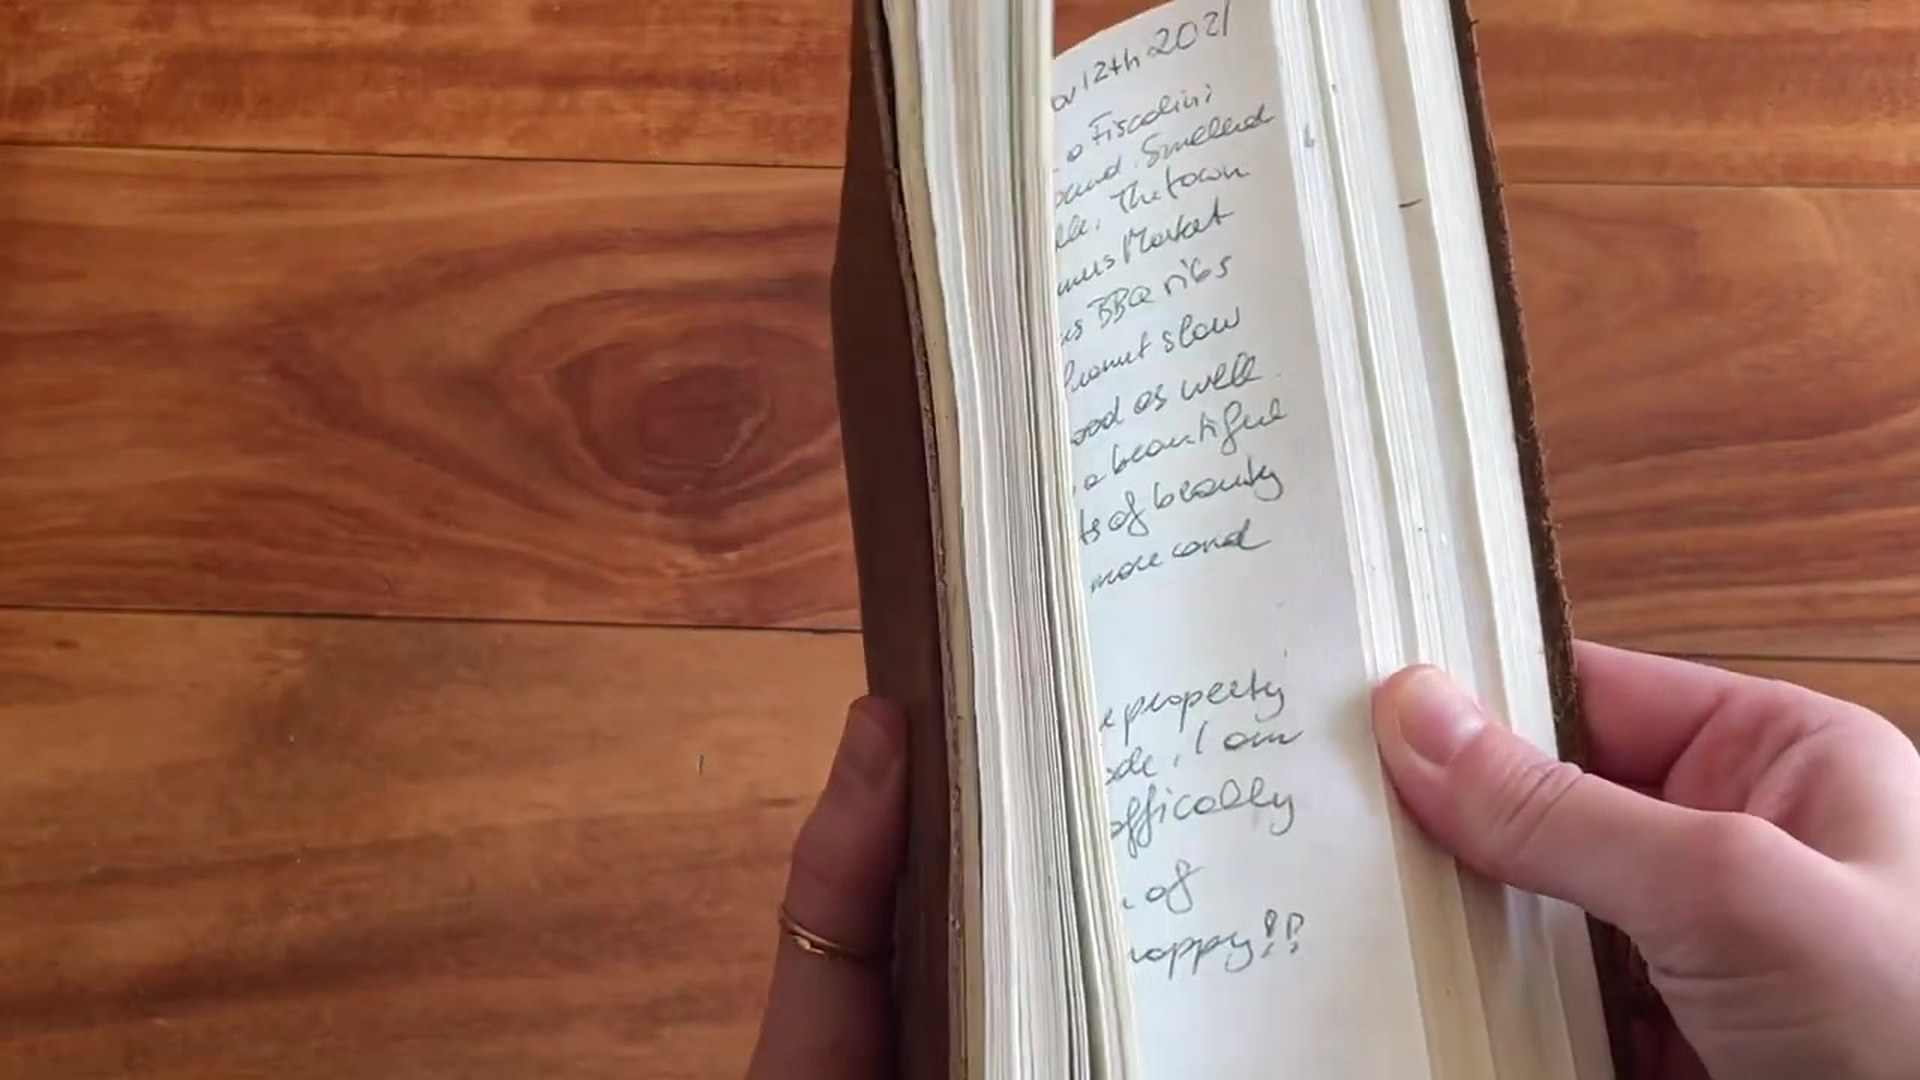 ov 12th 2021
o Fiscalini
ound. Smelled
lle. The town
mus Market
us BBQ ribs
slow
ood as well.
a beautiful
ts of beauty
more and
property
ade, I am
offically
of
happy!!